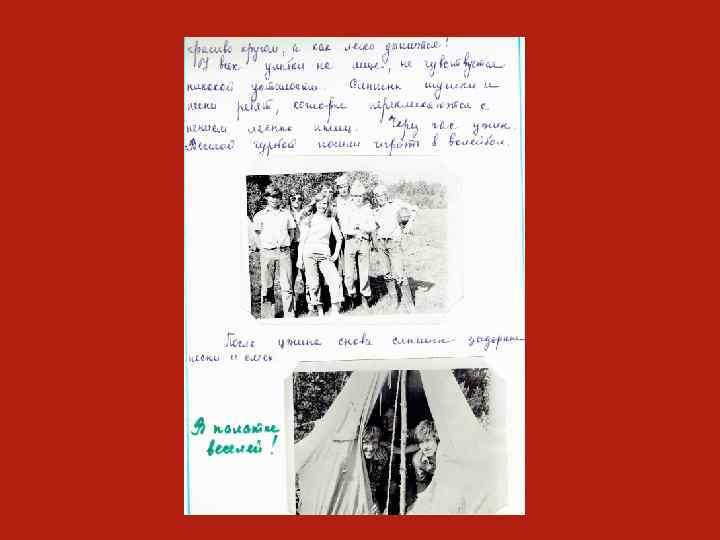 красиво кругом, а как легко дышится!
У всех улыбки на лице, не чувствуется
никакой усталости. Слышны шутки и
песни ребят, которые перекликаются с
пением лесных птиц. Через час ужин.
Веселой гурьбой пошли играть в волейбол.
После ужина снова слышны задорные
песни и смех
В палатке
веселей!